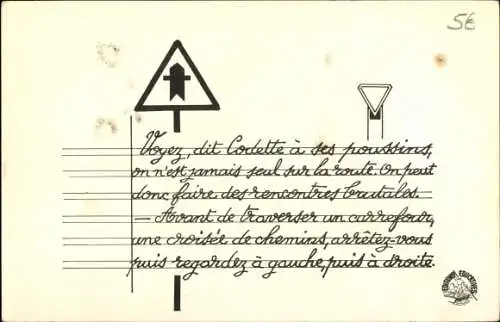 5€
Voyez, dit Codette à ses poussins,
on n'est jamais seul sur la route. On peut
donc faire des rencontres brutales.
— Avant de traverser un carrefour,
une croisée de chemins, arrêtez-vous
puis regardez à gauche, puis à droite.